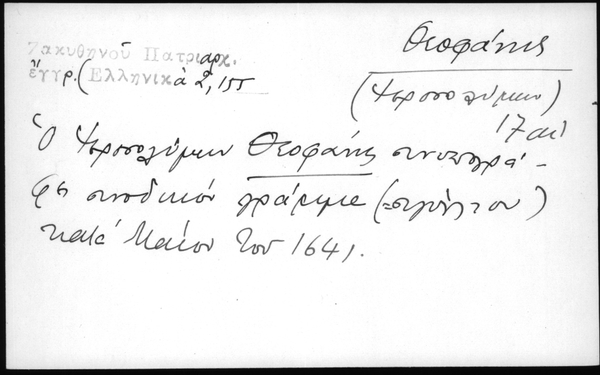 Ζακυθηνοῦ Πατριαρχ.
ἔγγρ. (Ἑλληνικὰ 2, 155
Θεοφάνης
(Ἱεροσολύμων)
17 αἰ
Ὁ Ἱεροσολύμων Θεοφάνης συνυπογρά-
φει συνοδικόν γράμμα (= σιγίλλιον)
κατά Μαίον του 1641.